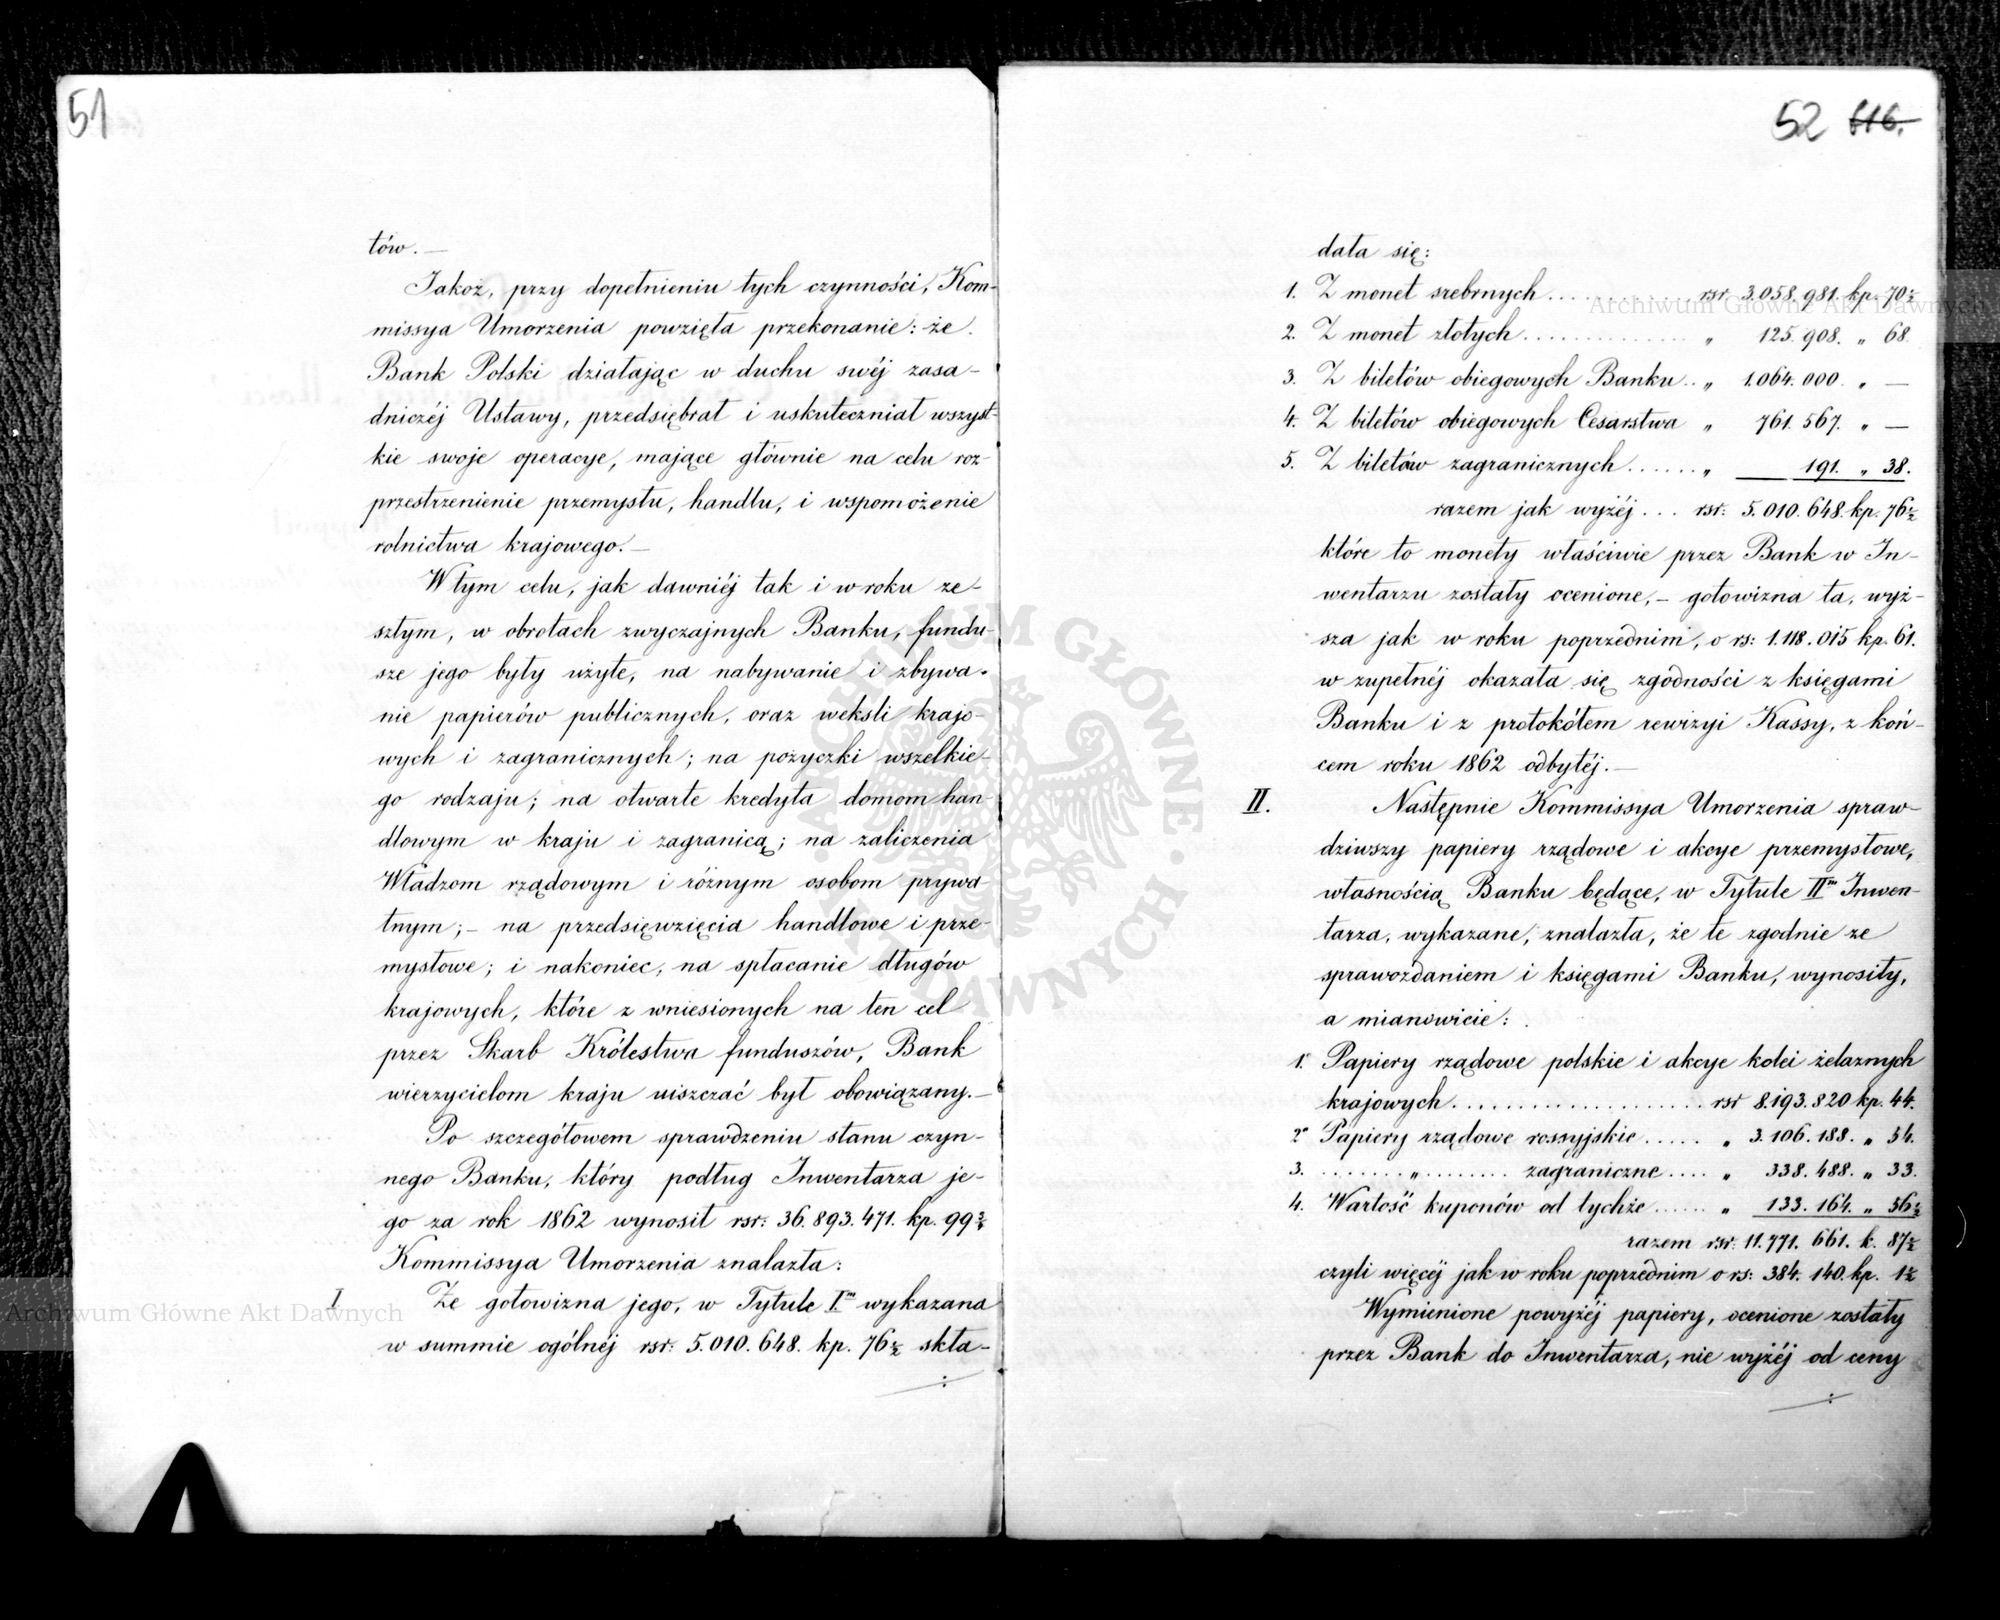 51
tów. —
Jakoż, przy dopełnieniu tych czynności, Kom-
missya Umorzenia powzięła przekonanie: że
Bank Polski działając w duchu swéj zasa-
dniczéj Ustawy, przedsiębrał i uskuteczniał wszyst-
kie swoje operacye, mające głównie na celu roz-
przestrzenienie przemysłu, handlu, i wspomożenie
rolnictwa krajowego. —
W tym celu, jak dawniéj tak i w roku ze-
szłym, w obrotach zwyczajnych Banku, fundu-
sze jego były użyte, na nabywanie i zbywa-
nie papierów publicznych, oraz weksli krajo-
wych i zagranicznych; na pożyczki wszelkie-
go rodzaju; na otwarte kredyta domom han-
dlowym w kraju i zagranicą; na zaliczenia
Władzom rządowym i różnym osobom prywa-
tnym; — na przedsięwzięcia handlowe i prze-
mysłowe; i nakoniec, na spłacanie długów
krajowych, które z wniesionych na ten cel
przez Skarb Królestwa funduszów, Bank
wierzycielom kraju uiszczać był obowiązany. —
Po szczegółowem sprawdzeniu stanu czyn-
nego Banku, który podług Inwentarza je-
go za rok 1862 wynosił rsr: 36.893.471. kp. 99 3/4
Kommissya Umorzenia znalazła:
I Że gotowizna jego, w Tytule I.m wykazana
w summie ogólnéj rsr: 5.010.648. kp. 76 1/2 skła-
52 616.
dała się:
1. Z monet srebrnych . . . . . . . . rsr 3.058.981. kp. 70 1/2
2. Z monet złotych . . . . . . . . . . . . . . " 125.908. " 68
3. Z biletów obiegowych Banku . . " 1.064.000. " —
4. Z biletów obiegowych Cesarstwa " 761.567. " —
5. Z biletów zagranicznych . . . . . . " 191. " 38.
razem jak wyżéj . . . rsr: 5.010.648. kp. 76 1/2
które to monety właściwie przez Bank w In-
wentarzu zostały ocenione, — gotowizna ta, wyż-
sza jak w roku poprzednim, o rs: 1.118.015 kp. 61.
w zupełnéj okazała się zgodności z księgami
Banku i z protokółem rewizyi Kassy, z koń-
cem roku 1862 odbytéj. —
II. Następnie Kommissya Umorzenia spraw-
dziwszy papiery rządowe i akcye przemysłowe,
własnością Banku będące, w Tytule II.m Inwen-
tarza, wykazane, znalazła, że te zgodnie ze
sprawozdaniem i księgami Banku, wynosiły,
a mianowicie:
1. Papiery rządowe polskie i akcye kolei żelaznych
krajowych . . . . . . . . . . . . . . . . . . . . . . rsr 8.193.820 kp. 44.
2. Papiery rządowe rossyjskie . . . . . " 3.106.188. " 54.
3. . . . . . . . " . . . . . . . . zagraniczne . . . . " 338.488. " 33.
4. Wartość kuponów od tychże . . . . . . " 133.164. " 56 1/2
razem rsr: 11.771.661. k. 87 1/2
czyli więcéj jak w roku poprzednim o rs: 384.140. kp. 1 1/2
Wymienione powyżéj papiery, ocenione zostały
przez Bank do Inwentarza, nie wyżéj od ceny
Archiwum Główne Akt Dawnych
Archiwum Główne Akt Dawnych
ARCHIWUM GŁÓWNE AKT DAWNYCH